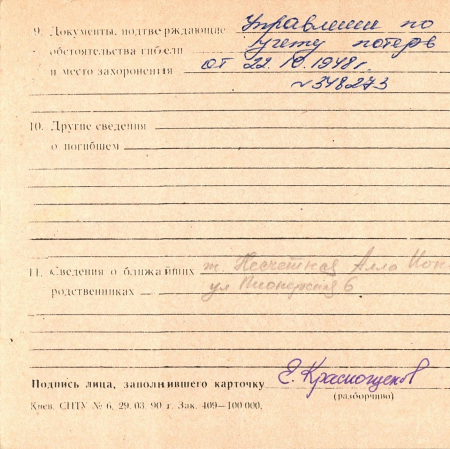 9. Документы, подтверждающие Управлении по
обстоятельства гибели учету потерь
и место захоронения от 22.10.1948г.
№348273
10. Другие сведения
о погибшем
11. Сведения о ближайших ж. Несчетная Алла Ион
родственниках ул Пионерская 6
Подпись лица, заполнившего карточку Е. Краснощеков
(разборчиво)
Киев. СПТУ № 6, 29. 03. 90 г. Зак. 409—100 000.